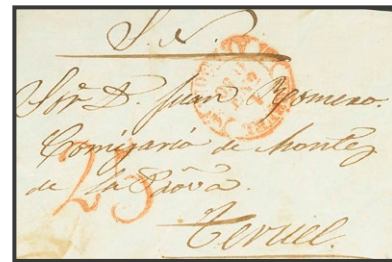 S. N.
Sor. D. Juan Romero
Comisario de Montes
de la Prova.
25
Teruel.